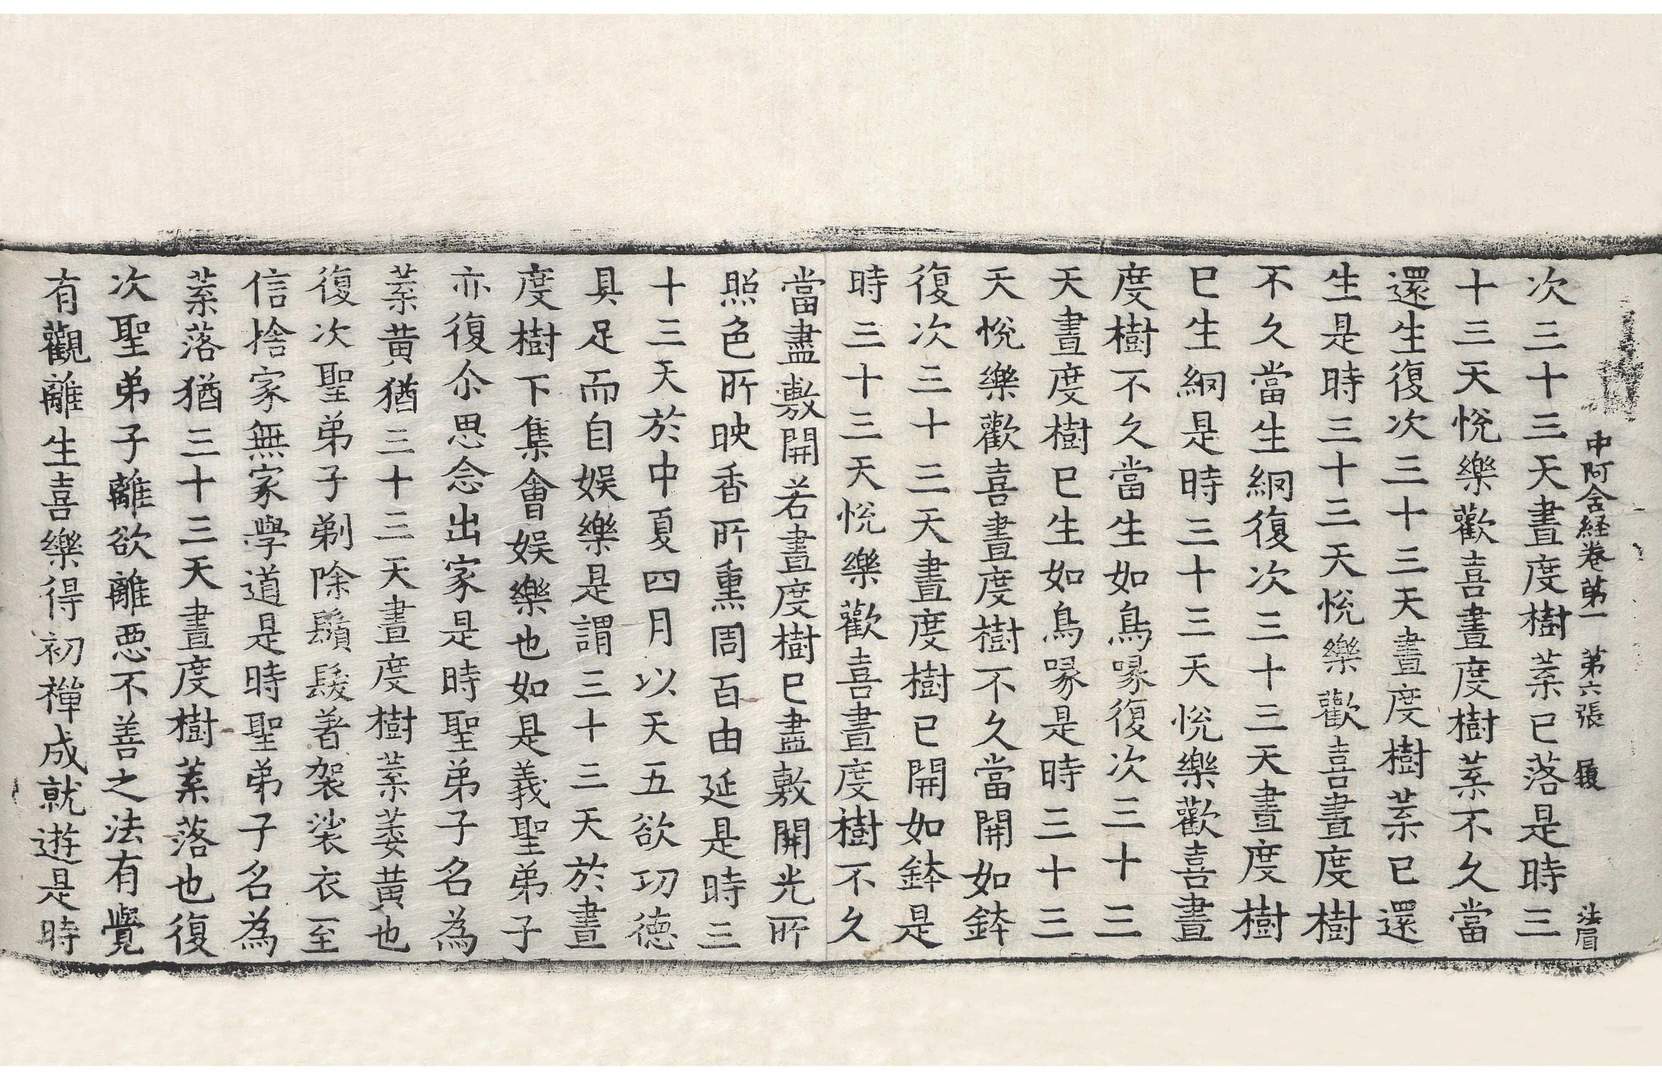 中阿含経卷第一　第六張　履　法眉
次三十三天晝度樹葉已落是時三
十三天悅樂歡喜晝度樹葉不久當
還生復次三十三天晝度樹葉已還
生是時三十三天悅樂歡喜晝度樹
不久當生網復次三十三天晝度樹
已生網是時三十三天悅樂歡喜晝
度樹不久當生如鳥喙復次三十三
天晝度樹已生如鳥喙是時三十三
天悅樂歡喜晝度樹不久當開如鉢
復次三十三天晝度樹已開如鉢是
時三十三天悅樂歡喜晝度樹不久
當盡敷開若晝度樹已盡敷開光所
照色所映香所熏周百由延是時三
十三天於中夏四月以天五欲功德
具足而自娛樂是謂三十三天於晝
度樹下集會娛樂也如是義聖弟子
亦復尒思念出家是時聖弟子名為
葉黄猶三十三天晝度樹葉萎黄也
復次聖弟子剃除鬚髮著袈裟衣至
信捨家無家學道是時聖弟子名為
葉落猶三十三天晝度樹葉落也復
次聖弟子離欲離惡不善之法有覺
有觀離生喜樂得初禪成就遊是時